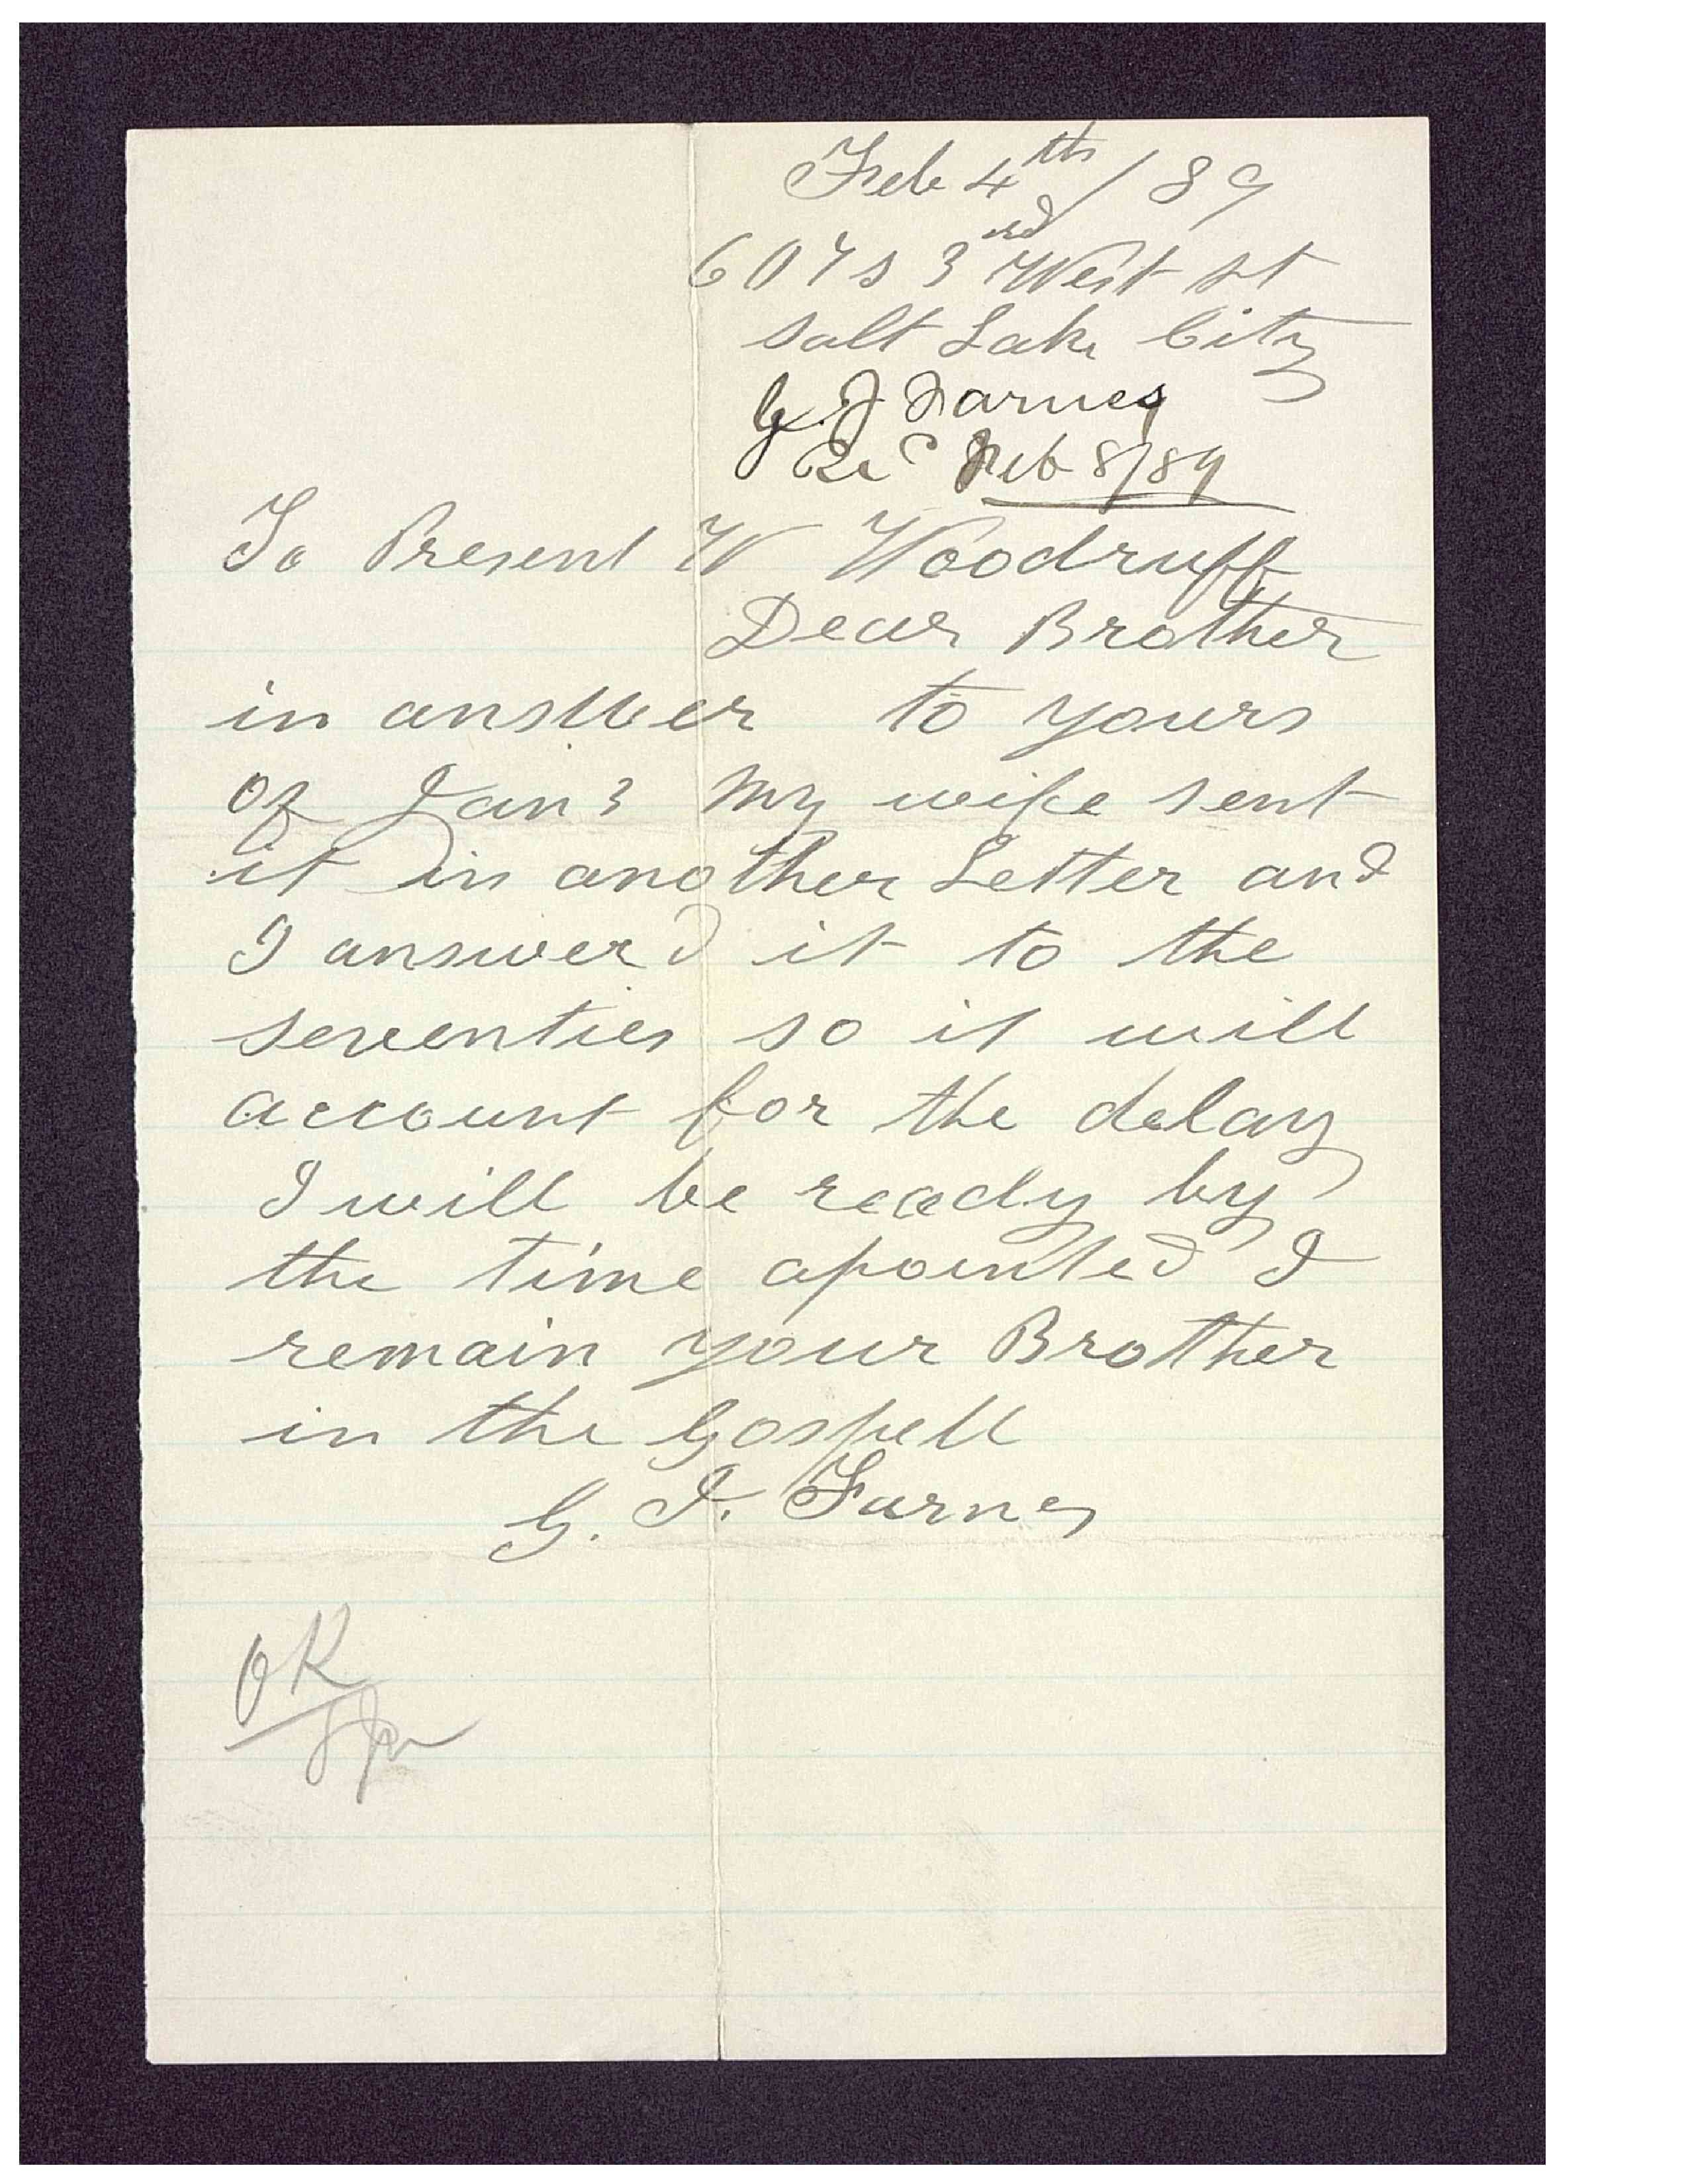 Feb 4th / 89
607 S 3rd West st
Salt Lake City
G. J Farnes
Rec Feb 8/89
To Present W Woodruff
Dear Brother
in answer to yours
of Jan 3 my wife sent
it in another Letter and
I answerd it to the
seventies so it will
account for the delay
I will be ready by
the time apointed I
remain your Brother
in the Gospell
G. J. Farnes
OK